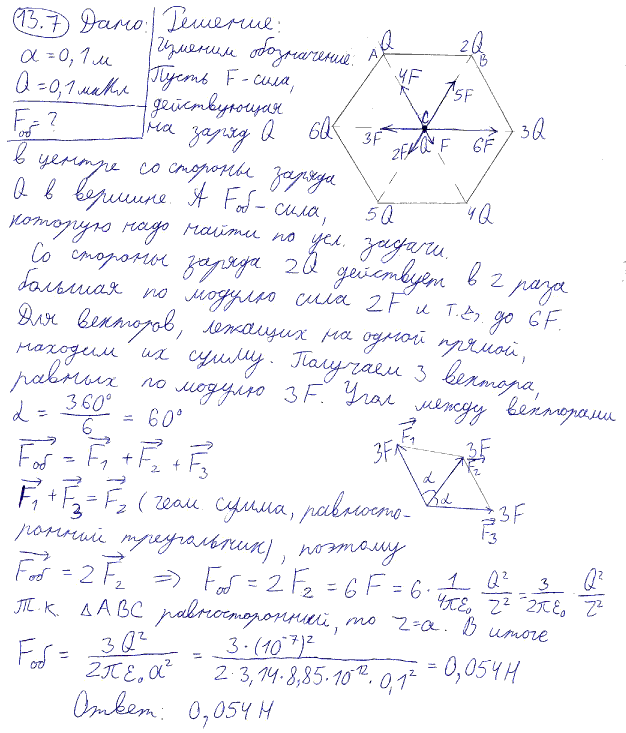 13.7 Дано: Решение:
a = 0,1 м
Q = 0,1 мкКл
Fоб = ?
Изменим обозначение.
Пусть F - сила,
действующая
на заряд Q
в центре со стороны заряда
Q в вершине. А Fоб - сила,
которую надо найти по усл. задачи.
Со стороны заряда 2Q действует в 2 раза
большая по модулю сила 2F и т.д. до 6F.
Для векторов, лежащих на одной прямой,
находим их сумму. Получаем 3 вектора,
равных по модулю 3F. Угол между векторами
α = 360°/6 = 60°
Fоб = F1 + F2 + F3
F1 + F3 = F2 (геом сумма, равносто-
ронний треугольник), поэтому
Fоб = 2F2 => Fоб = 2F2 = 6F = 6 · 1/4πε0 Q²/r² = 3/2πε0 · Q²/r²
Т.к. △ABC равносторонний, то r=a. В итоге
Fоб = 3Q²/2πε0a² = 3·(10⁻⁷)²/2·3,14·8,85·10⁻¹²·0,1² = 0,054 Н
Ответ: 0,054 Н
Q 2Q
A B
4F 5F
C
6Q 3F 6F 3Q
2F Q F
5Q 4Q
F1
3F 3F
F2
α α
3F
F3